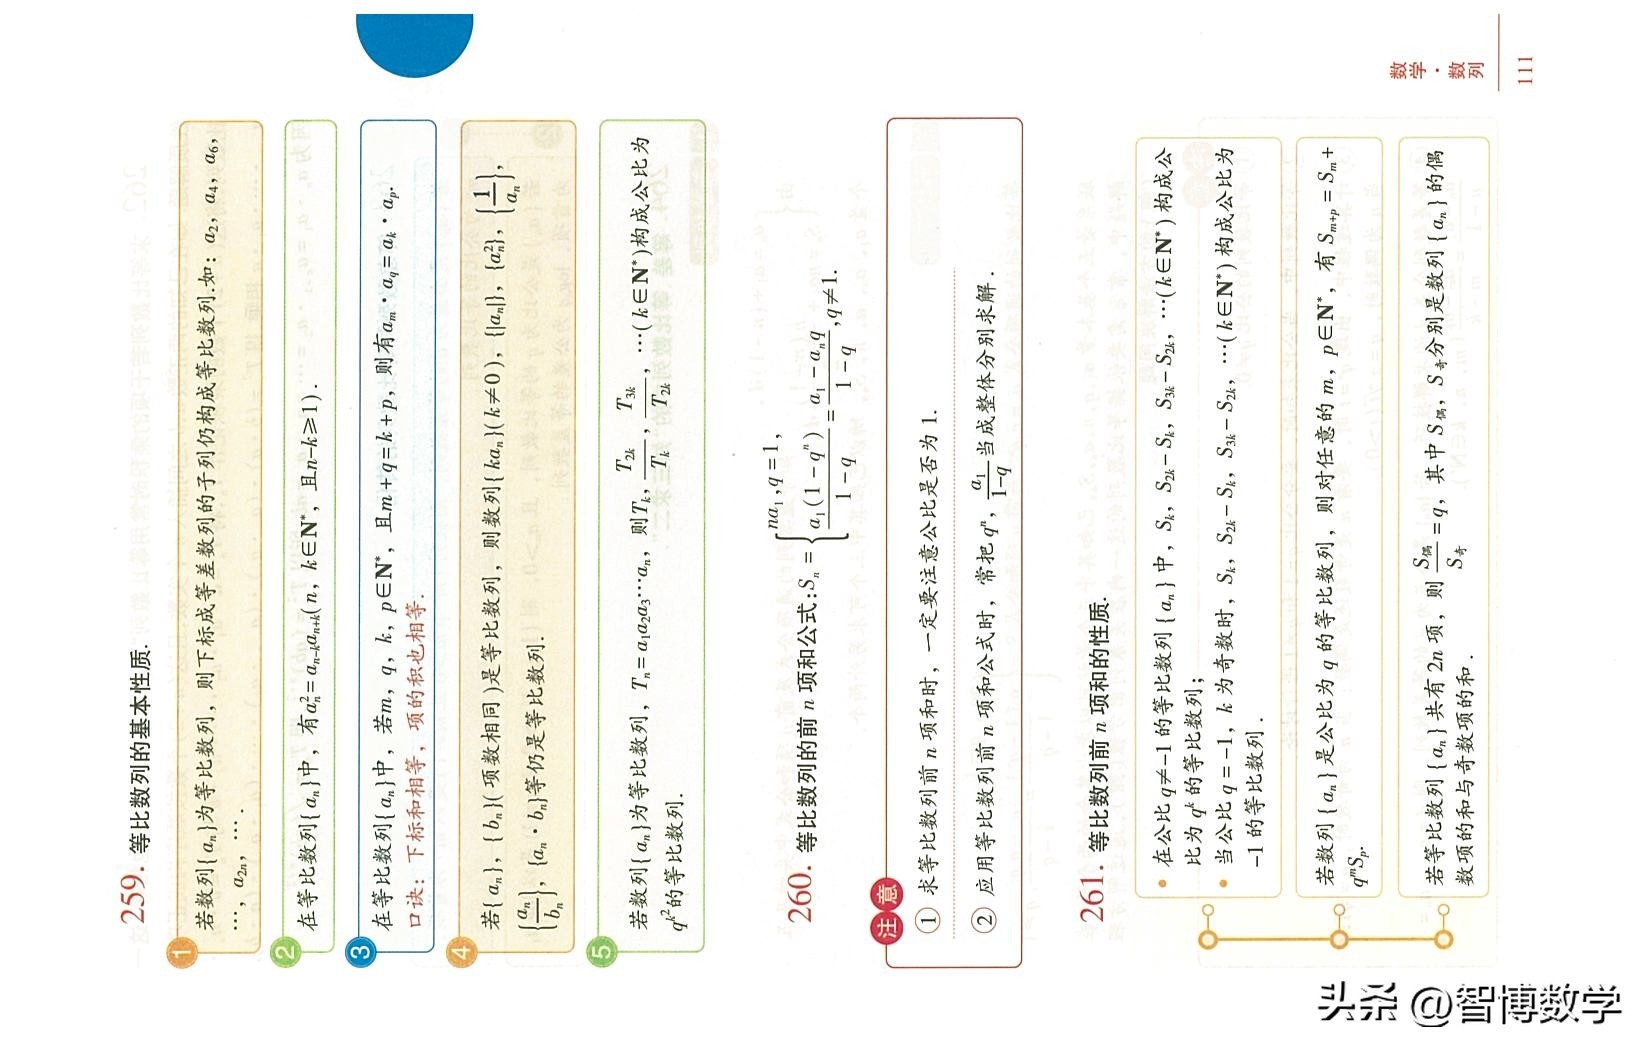 259. 等比数列的基本性质.
1 若数列{aₙ}为等比数列，则下标成等差数列的子列仍构成等比数列.如：a₂，a₄，a₆，
…，a₂ₙ，….
2 在等比数列{aₙ}中，有aₙ²=aₙ₋ₖaₙ₊ₖ(n，k∈N*，且n-k≥1).
3 在等比数列{aₙ}中，若m，q，k，p∈N*，且m+q=k+p，则有aₘ·a_q=aₖ·aₚ.
口诀：下标和相等，项的积也相等.
4 若{aₙ}，{bₙ}(项数相同)是等比数列，则数列{kaₙ}(k≠0)，{|aₙ|}，{aₙ²}，{1/aₙ}，
{aₙ/bₙ}，{aₙ·bₙ}等仍是等比数列.
5 若数列{aₙ}为等比数列，Tₙ=a₁a₂a₃…aₙ，则Tₖ，T₂ₖ/Tₖ，T₃ₖ/T₂ₖ，…(k∈N*)构成公比为
q^(k²)的等比数列.
260. 等比数列的前 n 项和公式:Sₙ={na₁,q=1，
a₁(1-qⁿ)/(1-q)=(a₁-aₙq)/(1-q),q≠1.
注意
① 求等比数列前 n 项和时，一定要注意公比是否为 1.
② 应用等比数列前 n 项和公式时，常把 qⁿ，a₁/(1-q)当成整体分别求解.
261. 等比数列前 n 项和的性质.
• 在公比 q≠-1 的等比数列{aₙ}中，Sₖ，S₂ₖ-Sₖ，S₃ₖ-S₂ₖ，…(k∈N*)构成公
比为 qᵏ 的等比数列；
• 当公比 q=-1，k 为奇数时，Sₖ，S₂ₖ-Sₖ，S₃ₖ-S₂ₖ，…(k∈N*)构成公比为
-1 的等比数列.
若数列{aₙ}是公比为 q 的等比数列，则对任意的 m，p∈N*，有 Sₘ₊ₚ=Sₘ+
qᵐSₚ.
若等比数列{aₙ}共有 2n 项，则 S偶/S奇=q，其中 S偶，S奇分别是数列{aₙ}的偶
数项的和与奇数项的和.
数学·数列
111
头条 @智博数学